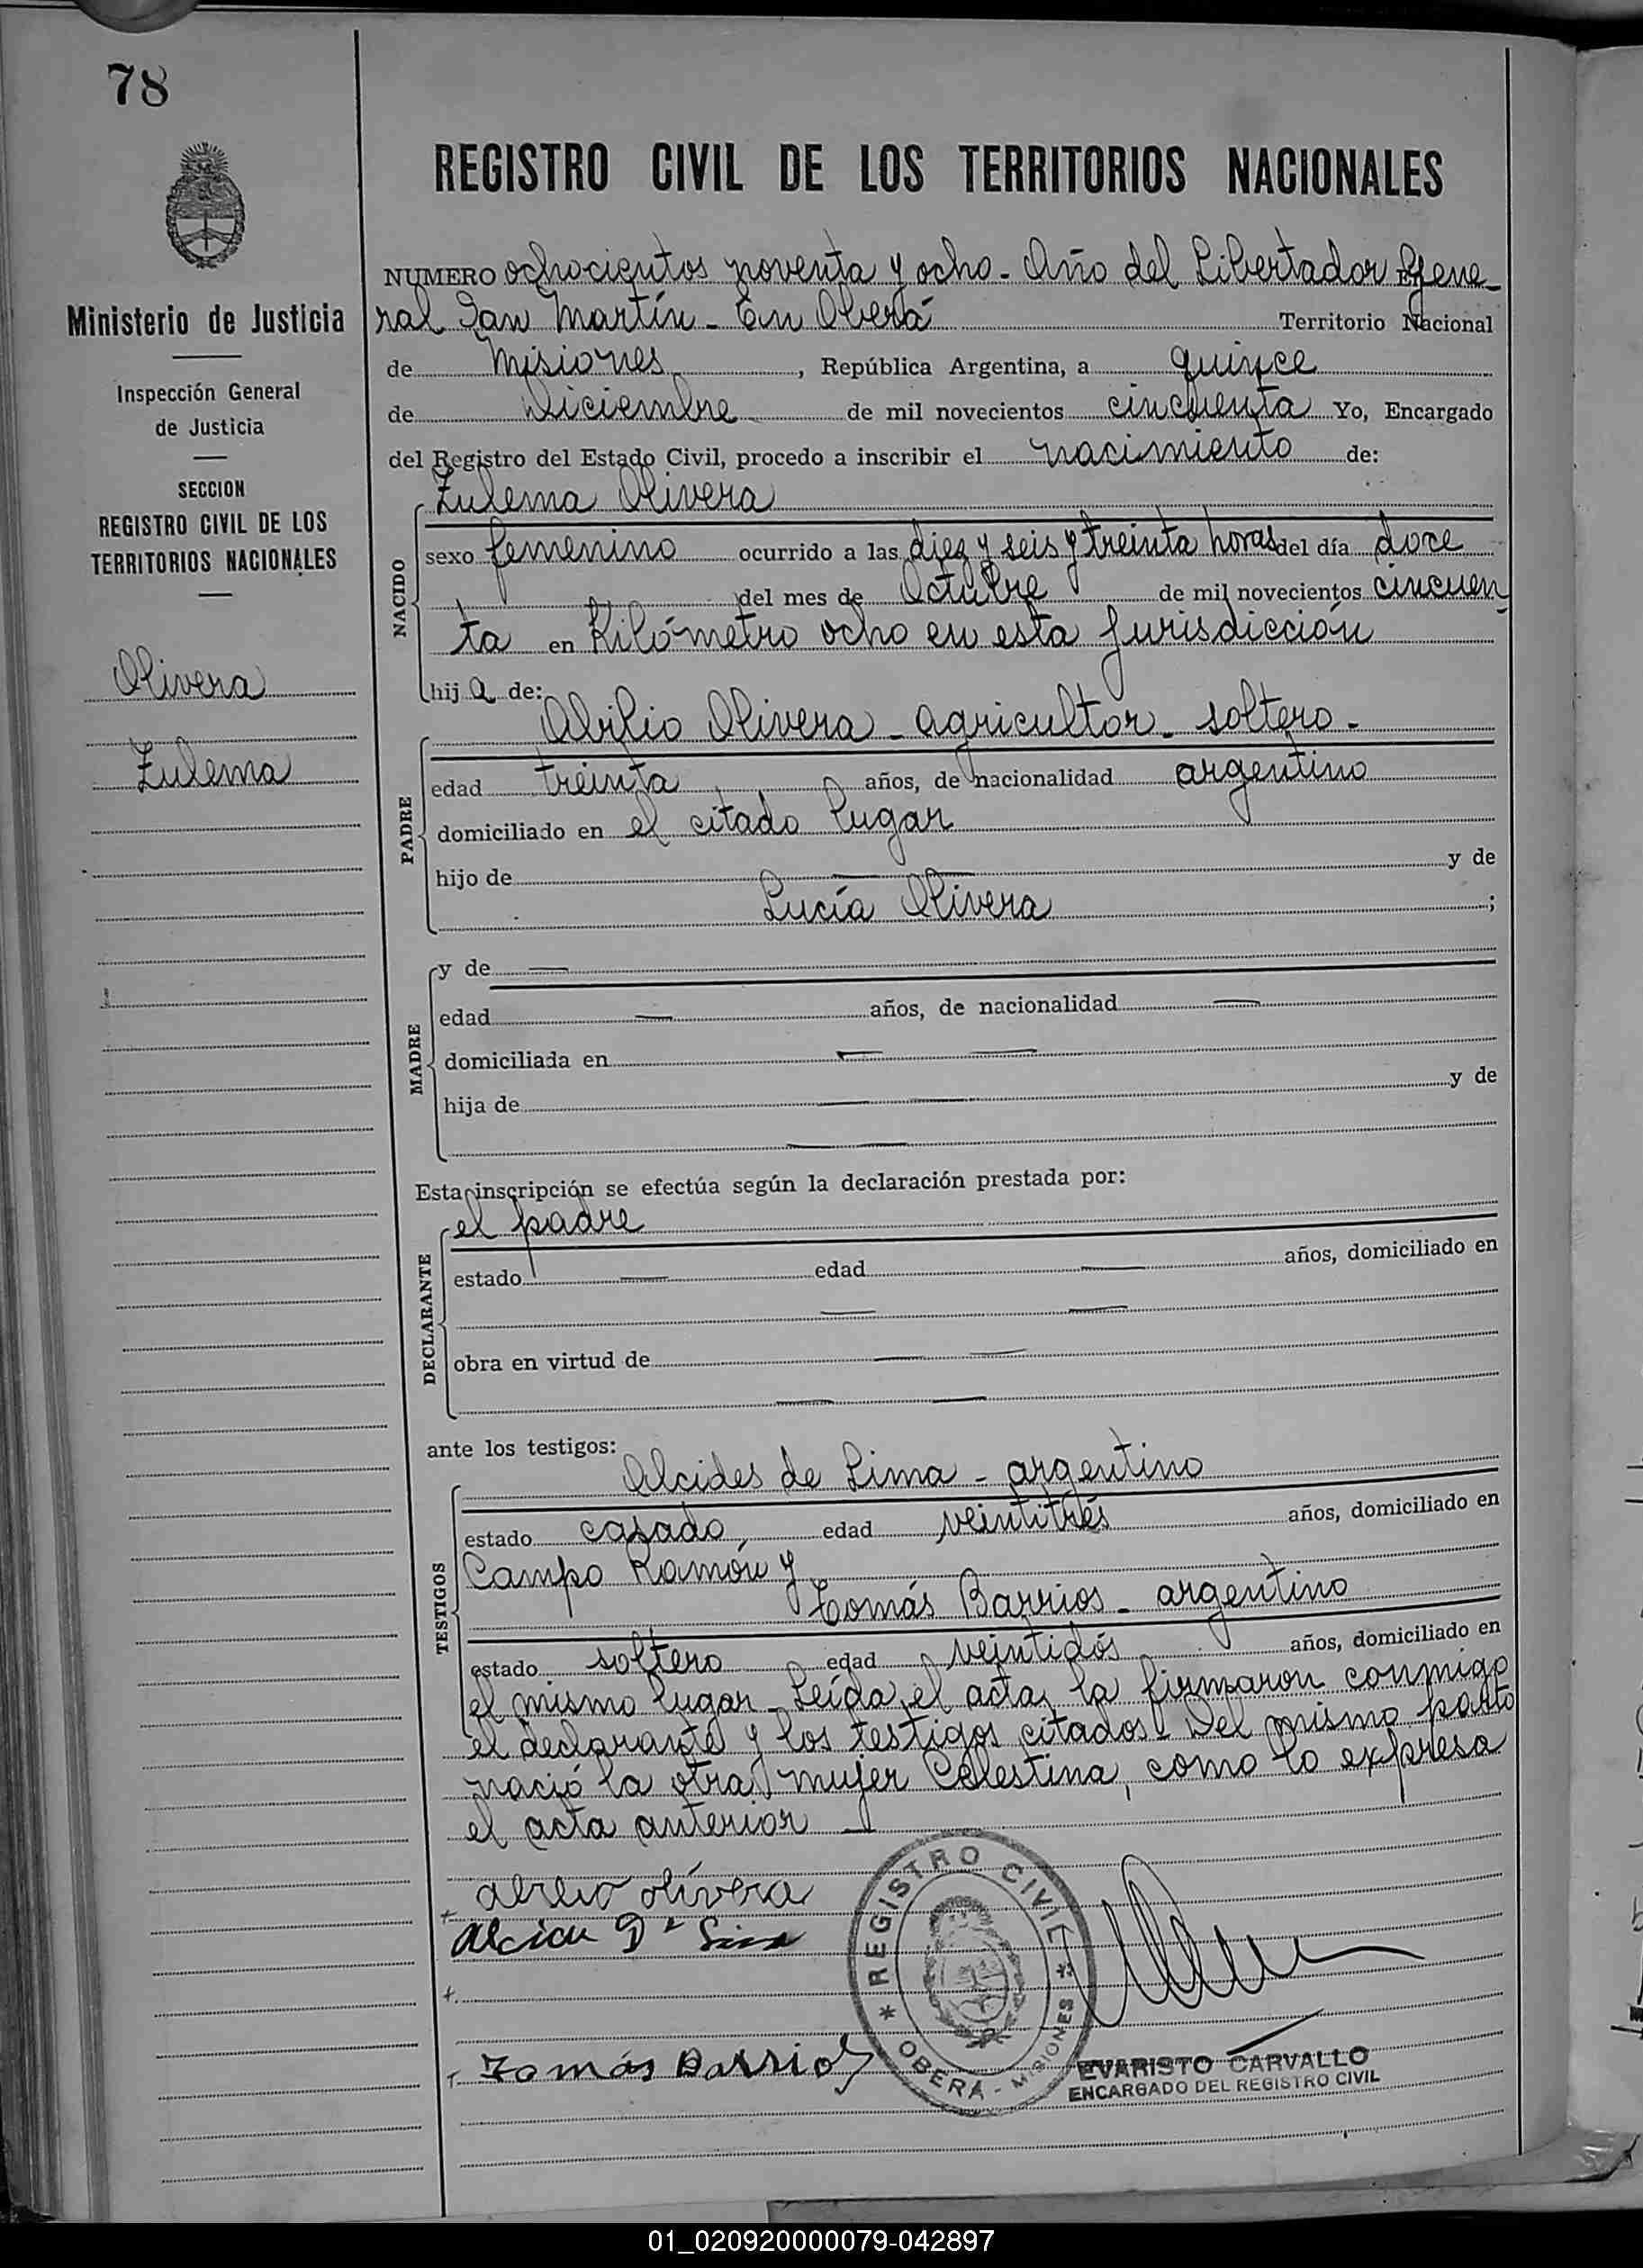 78
REGISTRO CIVIL DE LOS TERRITORIOS NACIONALES
Ministerio de Justicia
Inspección General
de Justicia
SECCION
REGISTRO CIVIL DE LOS
TERRITORIOS NACIONALES
Olivera
Zulema
NUMERO ochocientos noventa y ocho - Año del Libertador Gene-
ral San Martín - En Oberá Territorio Nacional
de Misiones, República Argentina, a quince
de Diciembre de mil novecientos cincuenta Yo, Encargado
del Registro del Estado Civil, procedo a inscribir el nacimiento de:
Zulema Olivera
NACIDO
sexo femenino ocurrido a las diez y seis y treinta horas del día doce
del mes de Octubre de mil novecientos cincuen
ta en Kilómetro ocho en esta jurisdicción
hij a de:
Abilio Olivera - agricultor - soltero -
PADRE
edad treinta años, de nacionalidad argentino
domiciliado en el citado lugar
hijo de — y de
Lucía Olivera ;
MADRE
y de —
edad — años, de nacionalidad —
domiciliada en — —
hija de — — y de
— —
Esta inscripción se efectúa según la declaración prestada por:
el padre
DECLARANTE
estado — edad — años, domiciliado en
— —
obra en virtud de — —
— —
ante los testigos:
Alcides de Lima - argentino
TESTIGOS
estado casado edad veintitrés años, domiciliado en
Campo Ramón y
Tomás Barrios - argentino
estado soltero edad veintidós años, domiciliado en
el mismo lugar - Leída el acta, la firmaron conmigo
el declarante y los testigos citados - Del mismo parto
nació la otra mujer Celestina, como lo expresa
el acta anterior —
+ abilio olivera
Tomás Barrios
* REGISTRO CIVIL *
OBERA - MISIONES
EVARISTO CARVALLO
ENCARGADO DEL REGISTRO CIVIL
01_020920000079-042897